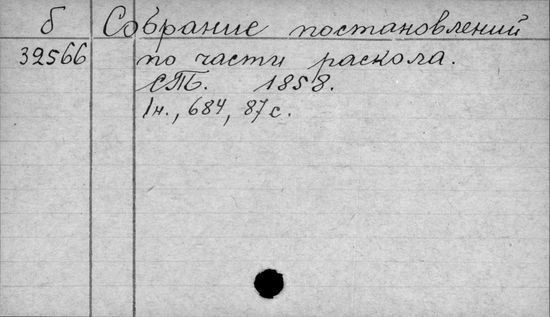 б Собрание постановлений
39566 по части раскола.
СПБ. 1858.
1н., 684, 87 с.